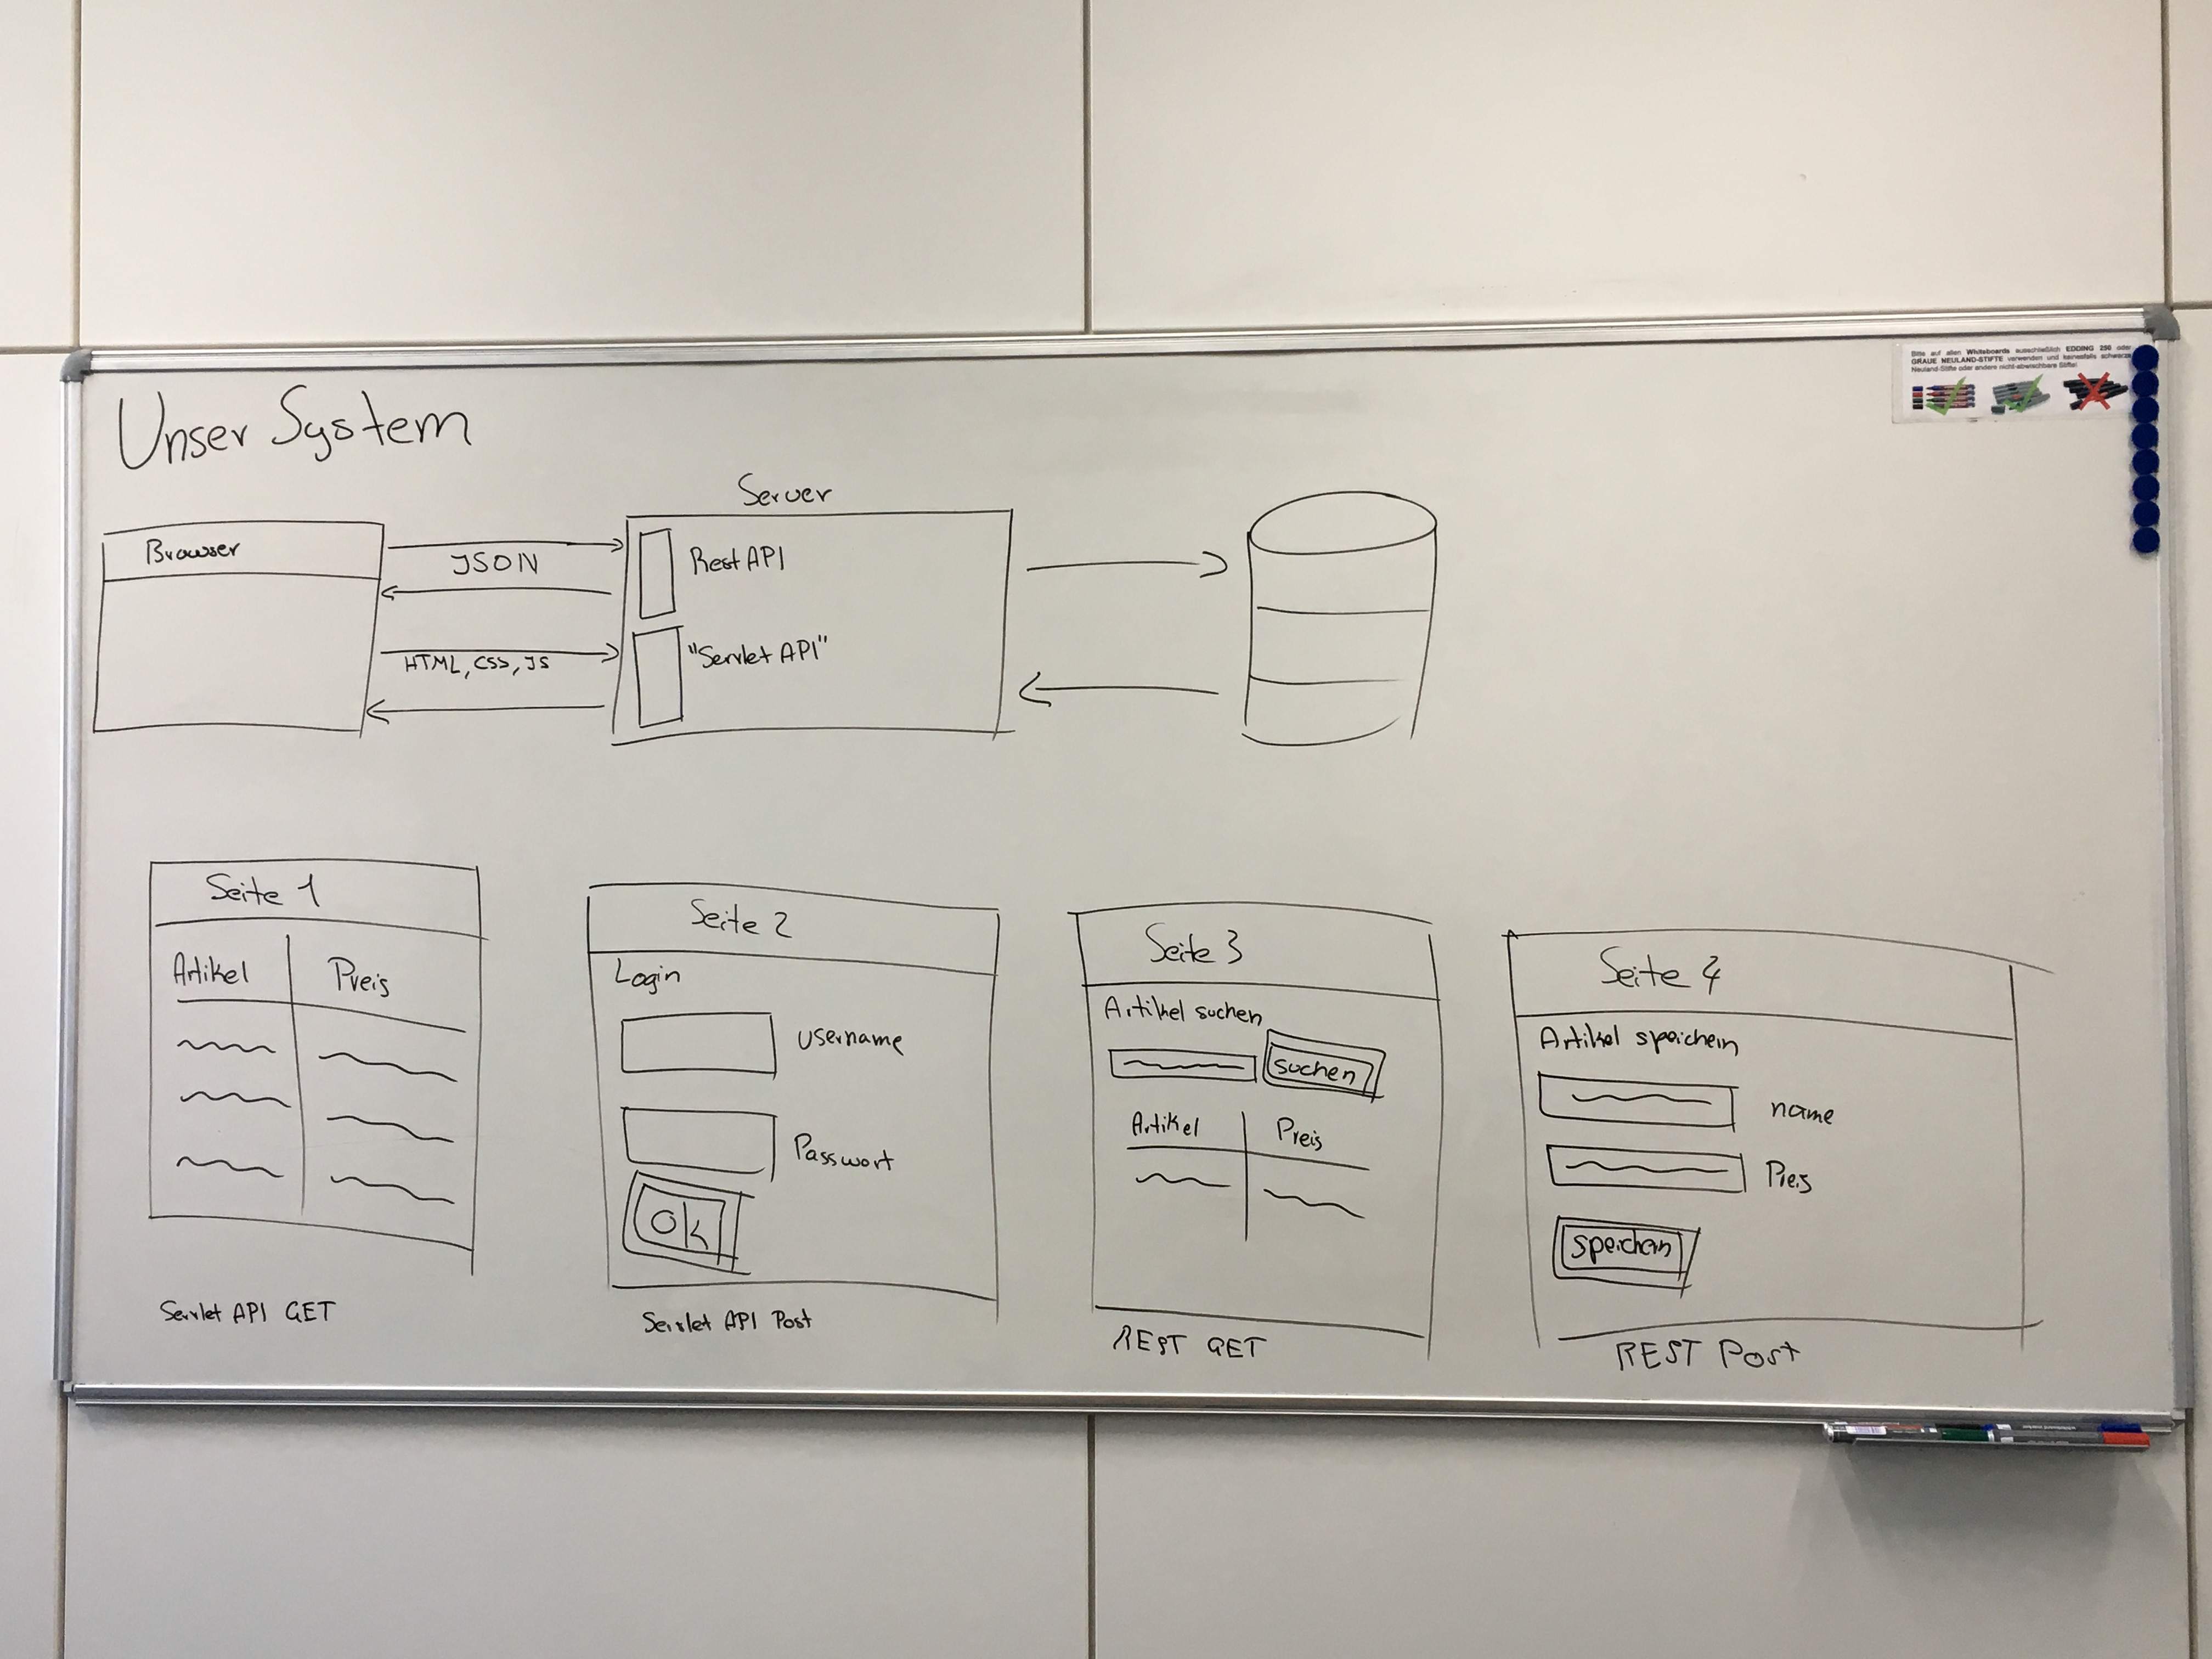 Bitte auf allen Whiteboards ausschließlich EDDING 250 oder
GRAUE NEULAND-STIFTE verwenden und keinesfalls schwarze
Neuland-Stifte oder andere nicht-abwischbare Stifte!
Unser System
Server
Browser
JSON
Rest API
HTML, CSS, JS
"Servlet API"
Seite 1
Artikel Preis
Servlet API GET
Seite 2
Login
username
Passwort
OK
Servlet API Post
Seite 3
Artikel suchen
suchen
Artikel Preis
REST GET
Seite 4
Artikel speichern
name
Preis
speichern
REST Post